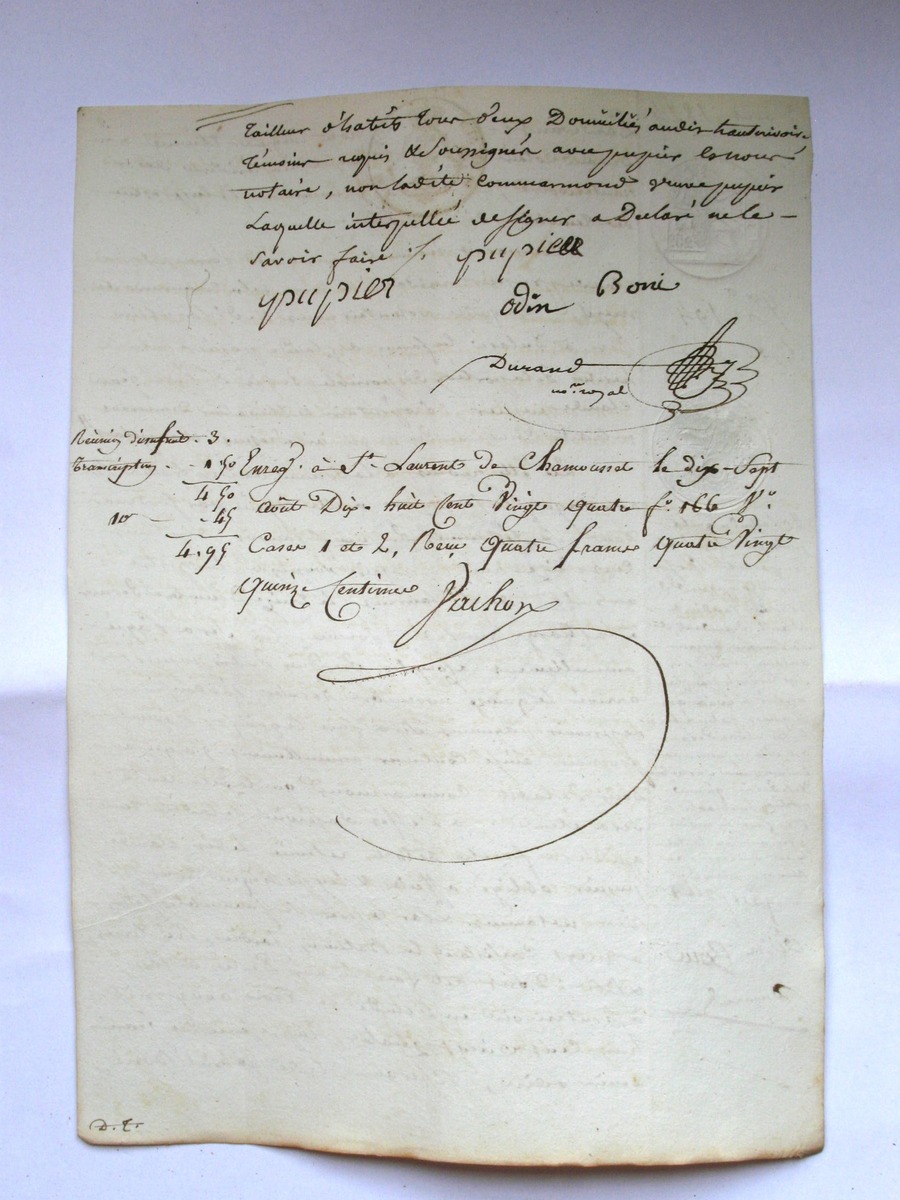 tailleur d'habits tous deux Domiciliés audit hauterivoire
témoins requis & Soussignés avec pupier & nous
notaire, non ladite Commarmond veuve pupier
Laquelle interpellée de signer a Déclaré ne le
savoir faire ./. pupier
pupier
odin Boni
Durand
no.re royal
Réunion d'usufruit . 3 .
transcription . . 1 50 Enreg. à St. Laurent de Chamousset le dix-Sept
4 50
août Dix-huit Cent Vingt quatre f.o 166 V.o
10 - 45
4.95 Cases 1 et 2, Reçu quatre francs quatre Vingt
quinze Centimes Vachon
D. T.